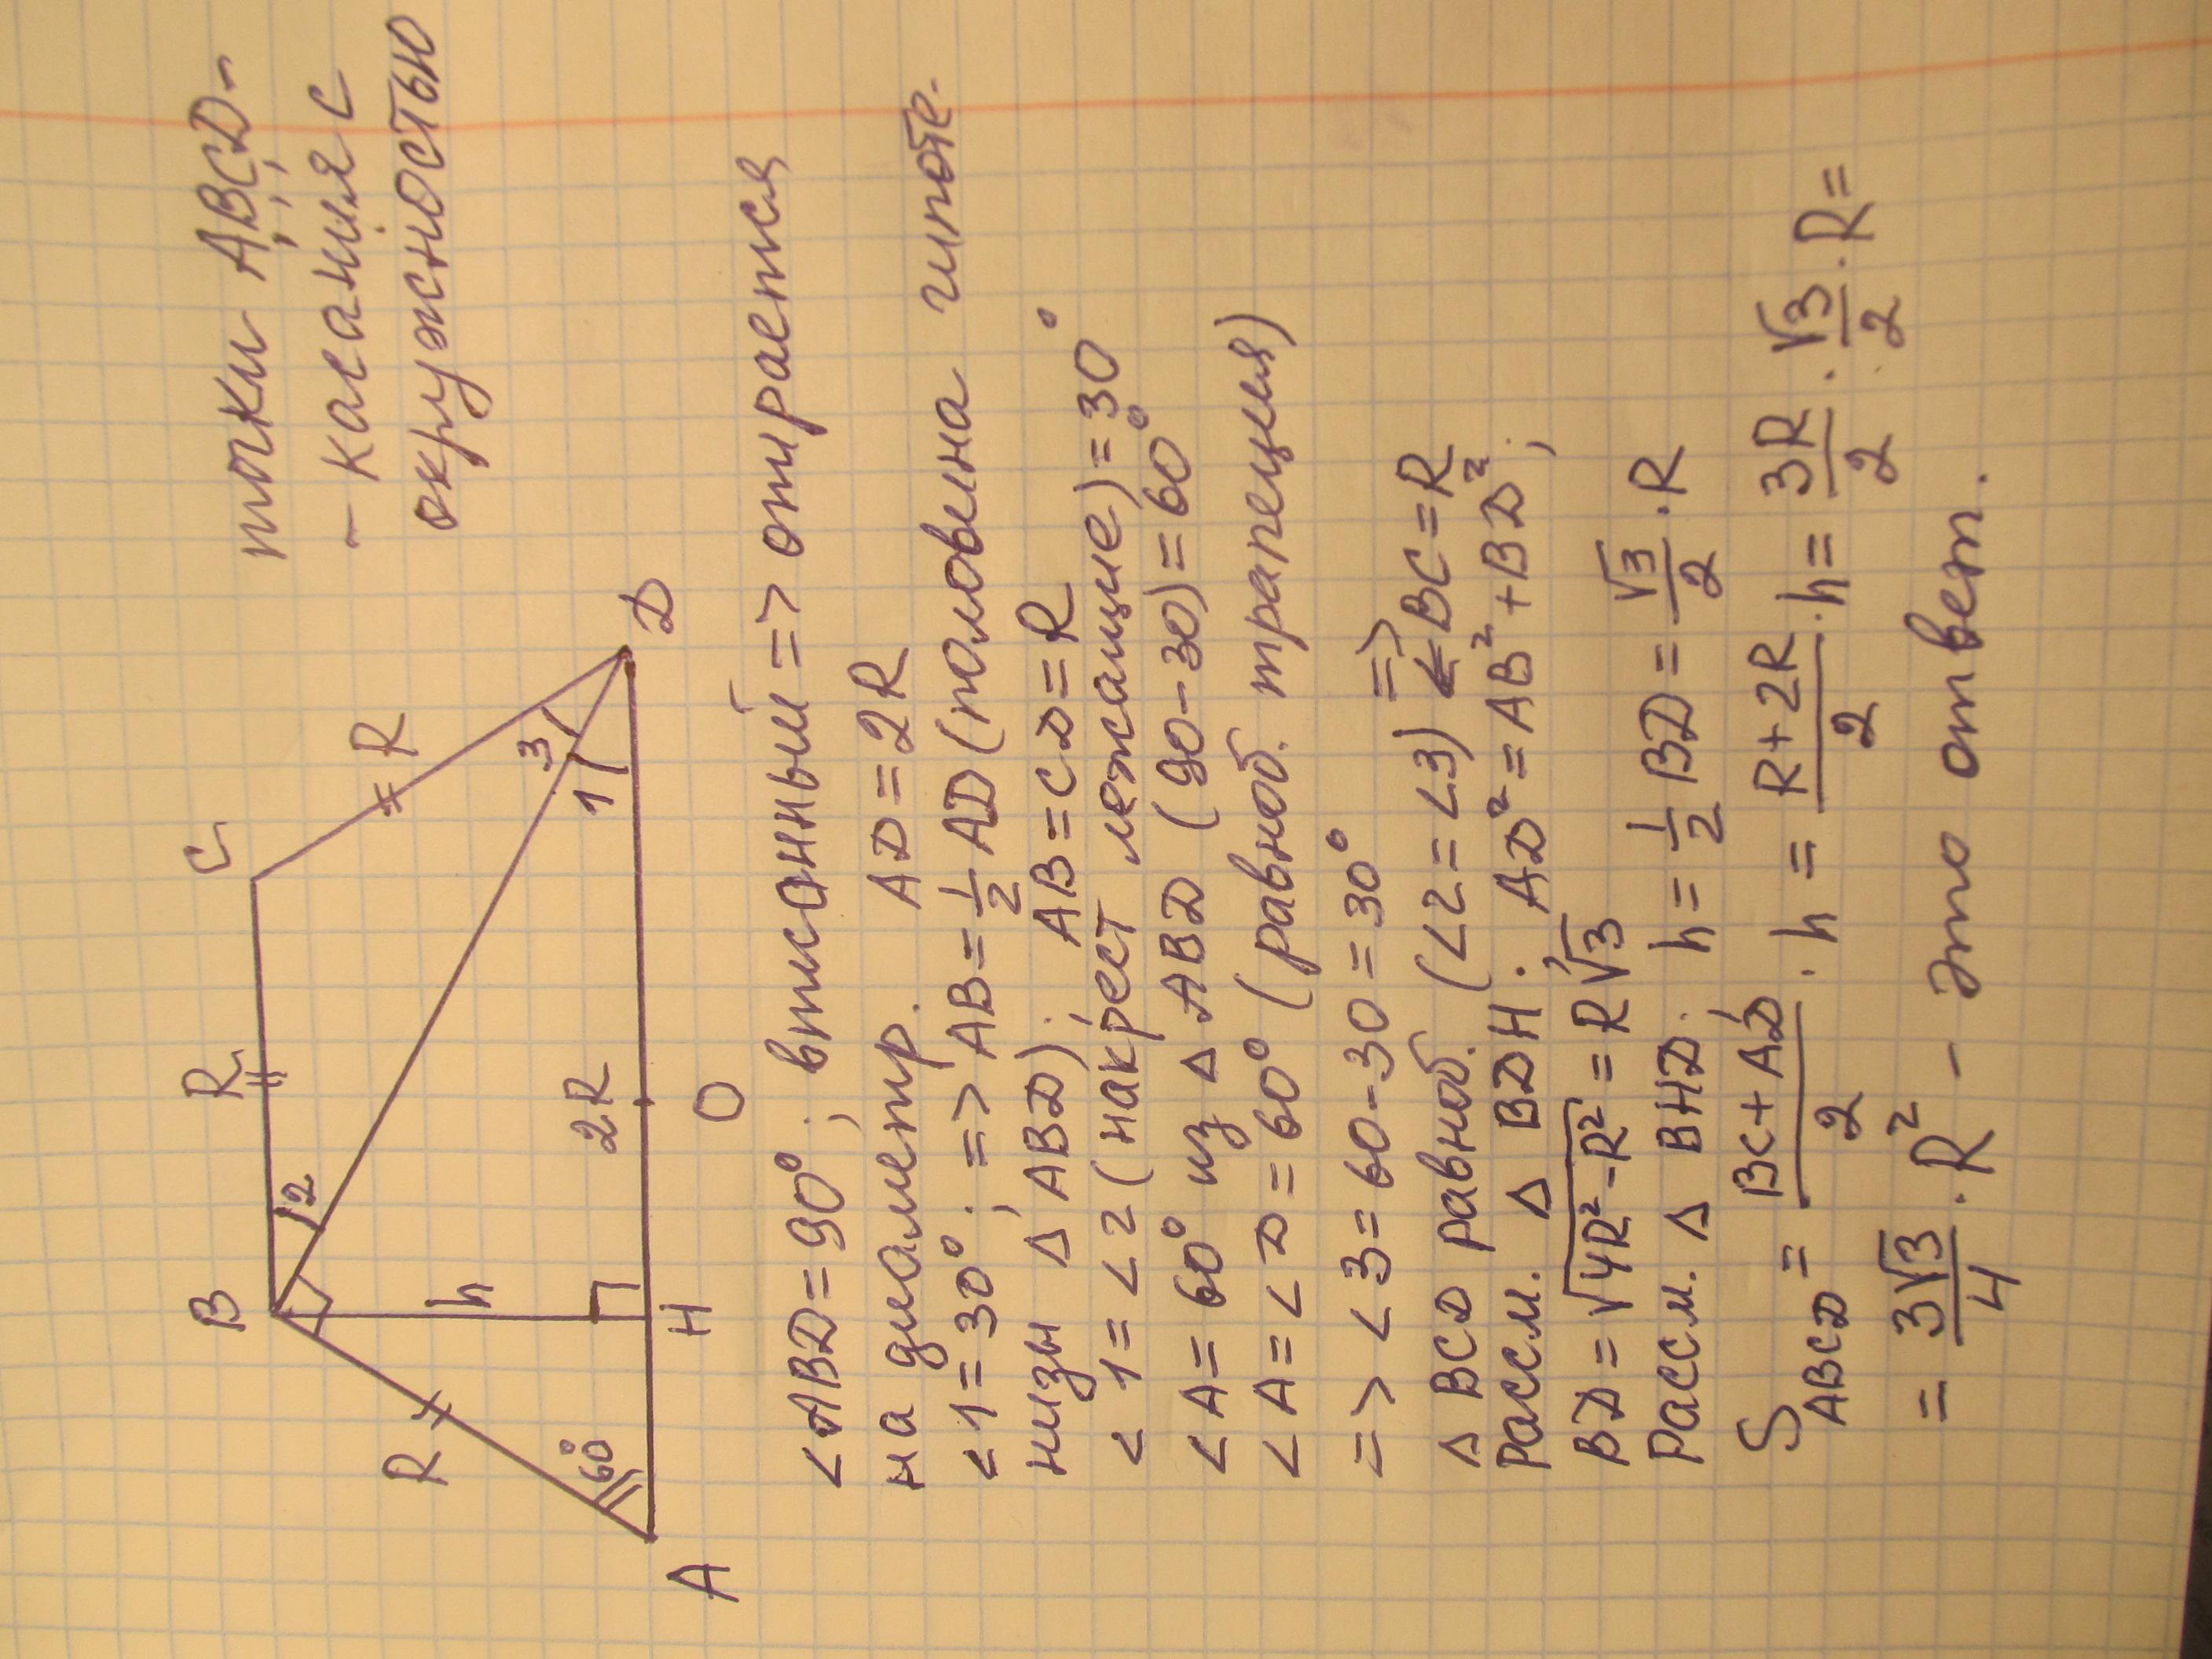 точки A, B, C, D -
- касания с
окружностью
B
R
C
R
R
h
2
3
1
60°
2R
A
H
O
D
∠ABD = 90°; вписанный => опирается
на диаметр. AD = 2R
∠1 = 30°; => AB = 1/2 AD (половина гипоте-
низы Δ ABD); AB = CD = R
∠1 = ∠2 (накрест лежащие) = 30°
∠A = 60° из Δ ABD (90-30) = 60°
∠A = ∠D = 60° (равноб. трапеция)
=> ∠3 = 60-30 = 30°
Δ BCD равноб. (∠2 = ∠3) => BC = R
Рассм. Δ BDH. AD² = AB² + BD²;
BD = √4R²-R² = R√3
Рассм. Δ BHD; h = 1/2 BD = √3/2 · R
S ABCD = BC + AD/2 · h = R + 2R/2 · h = 3R/2 · √3/2 · R =
= 3√3/4 · R² - это ответ.